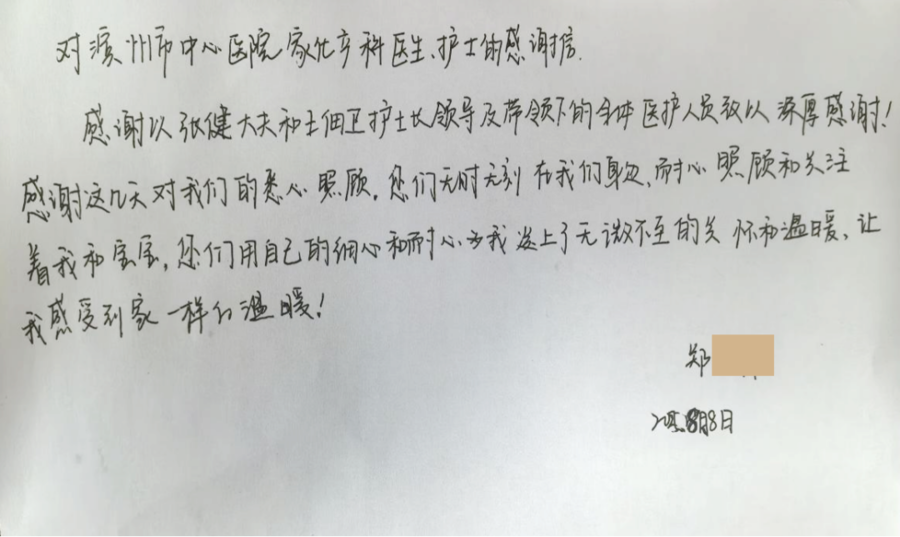 对滨州市中心医院家化产科医生、护士的感谢信
感谢以张健大夫和王佃卫护士长领导及带领下的全体医护人员致以深厚感谢!
感谢这几天对我们的悉心照顾,您们无时无刻在我们身边,耐心照顾和关注
着我和宝宝,您们用自己的细心和耐心为我送上了无微不至的关怀和温暖、让
我感受到家一样的温暖!
郑
8月8日